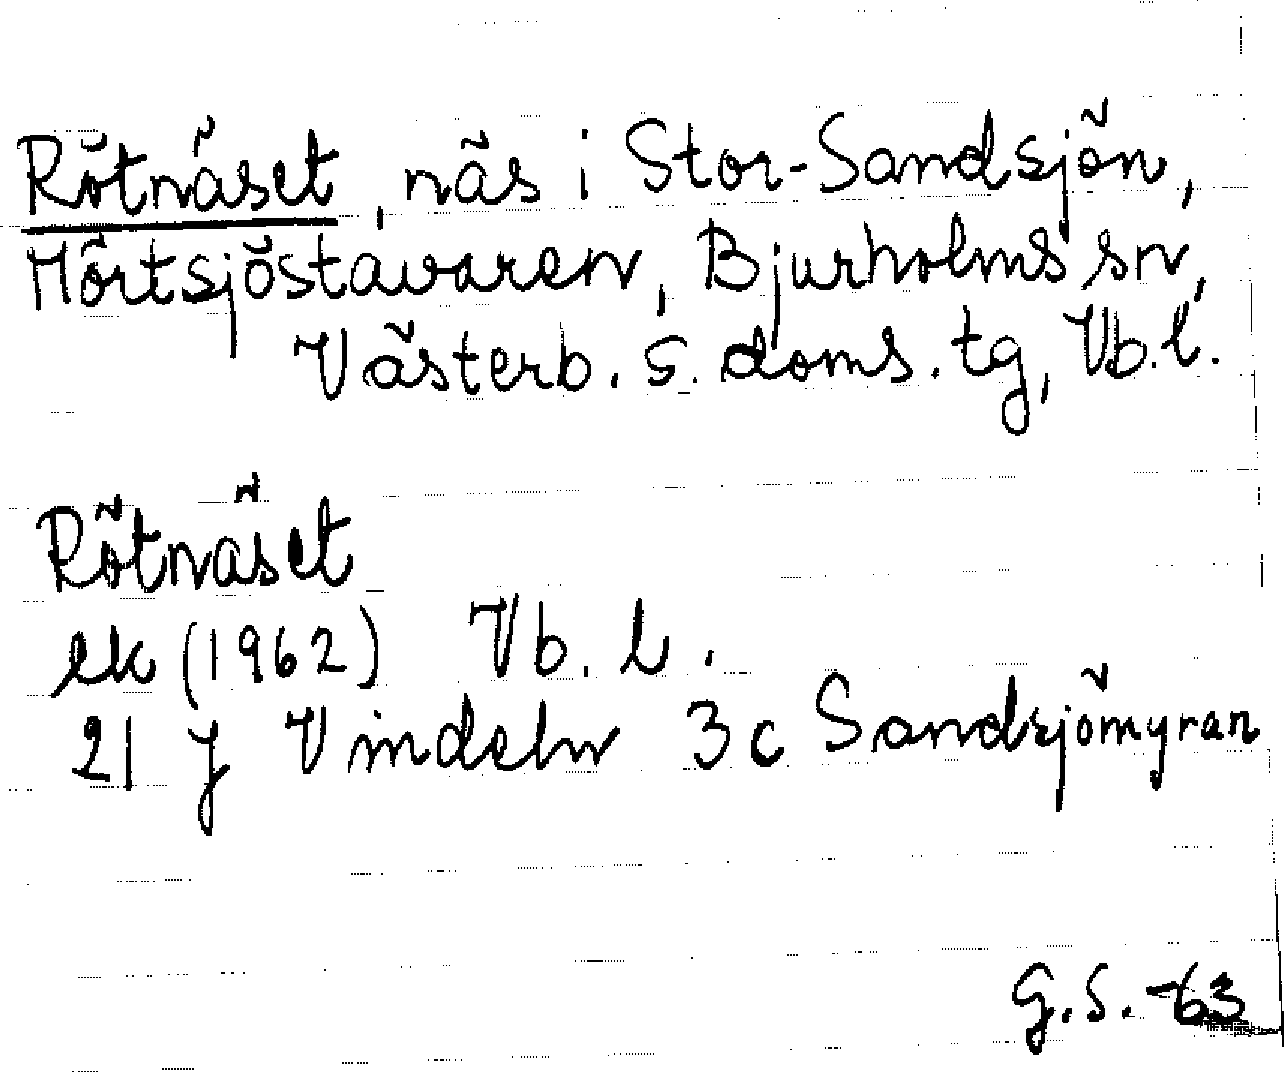 Rötnäset, näs i Stor-Sandsjön,
Mörtsjöstavaren, Bjurholms sn,
Västerb. s. doms. tg, Vb.l.
Rötnäset
ek (1962) Vb. l.
21 J Vindeln 3c Sandsjömyran
G.S. -63